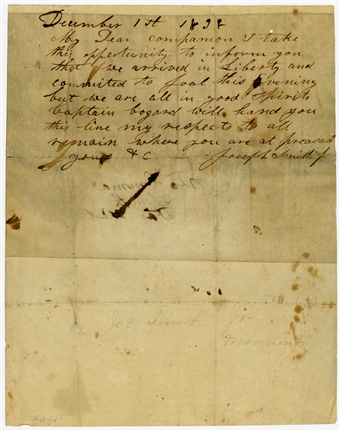 December 1st 1838
My Dear companion I take
this oppertunity to inform you
that we arrived in Liberty and
committed to Joal this Evening
but we are all in good spirits
Captain bogard will hand you
this line my respects to all
remain where you are at preasant
yours &C Joseph Smith Jr
Joe Smith Jr
Mormon